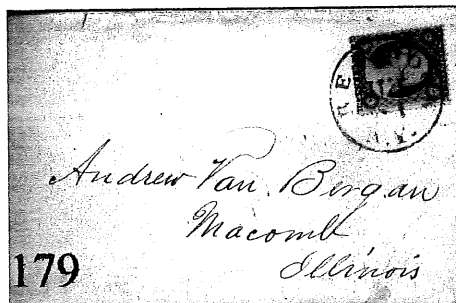 Andrew Van Bergan
Macomb
Illinois
179